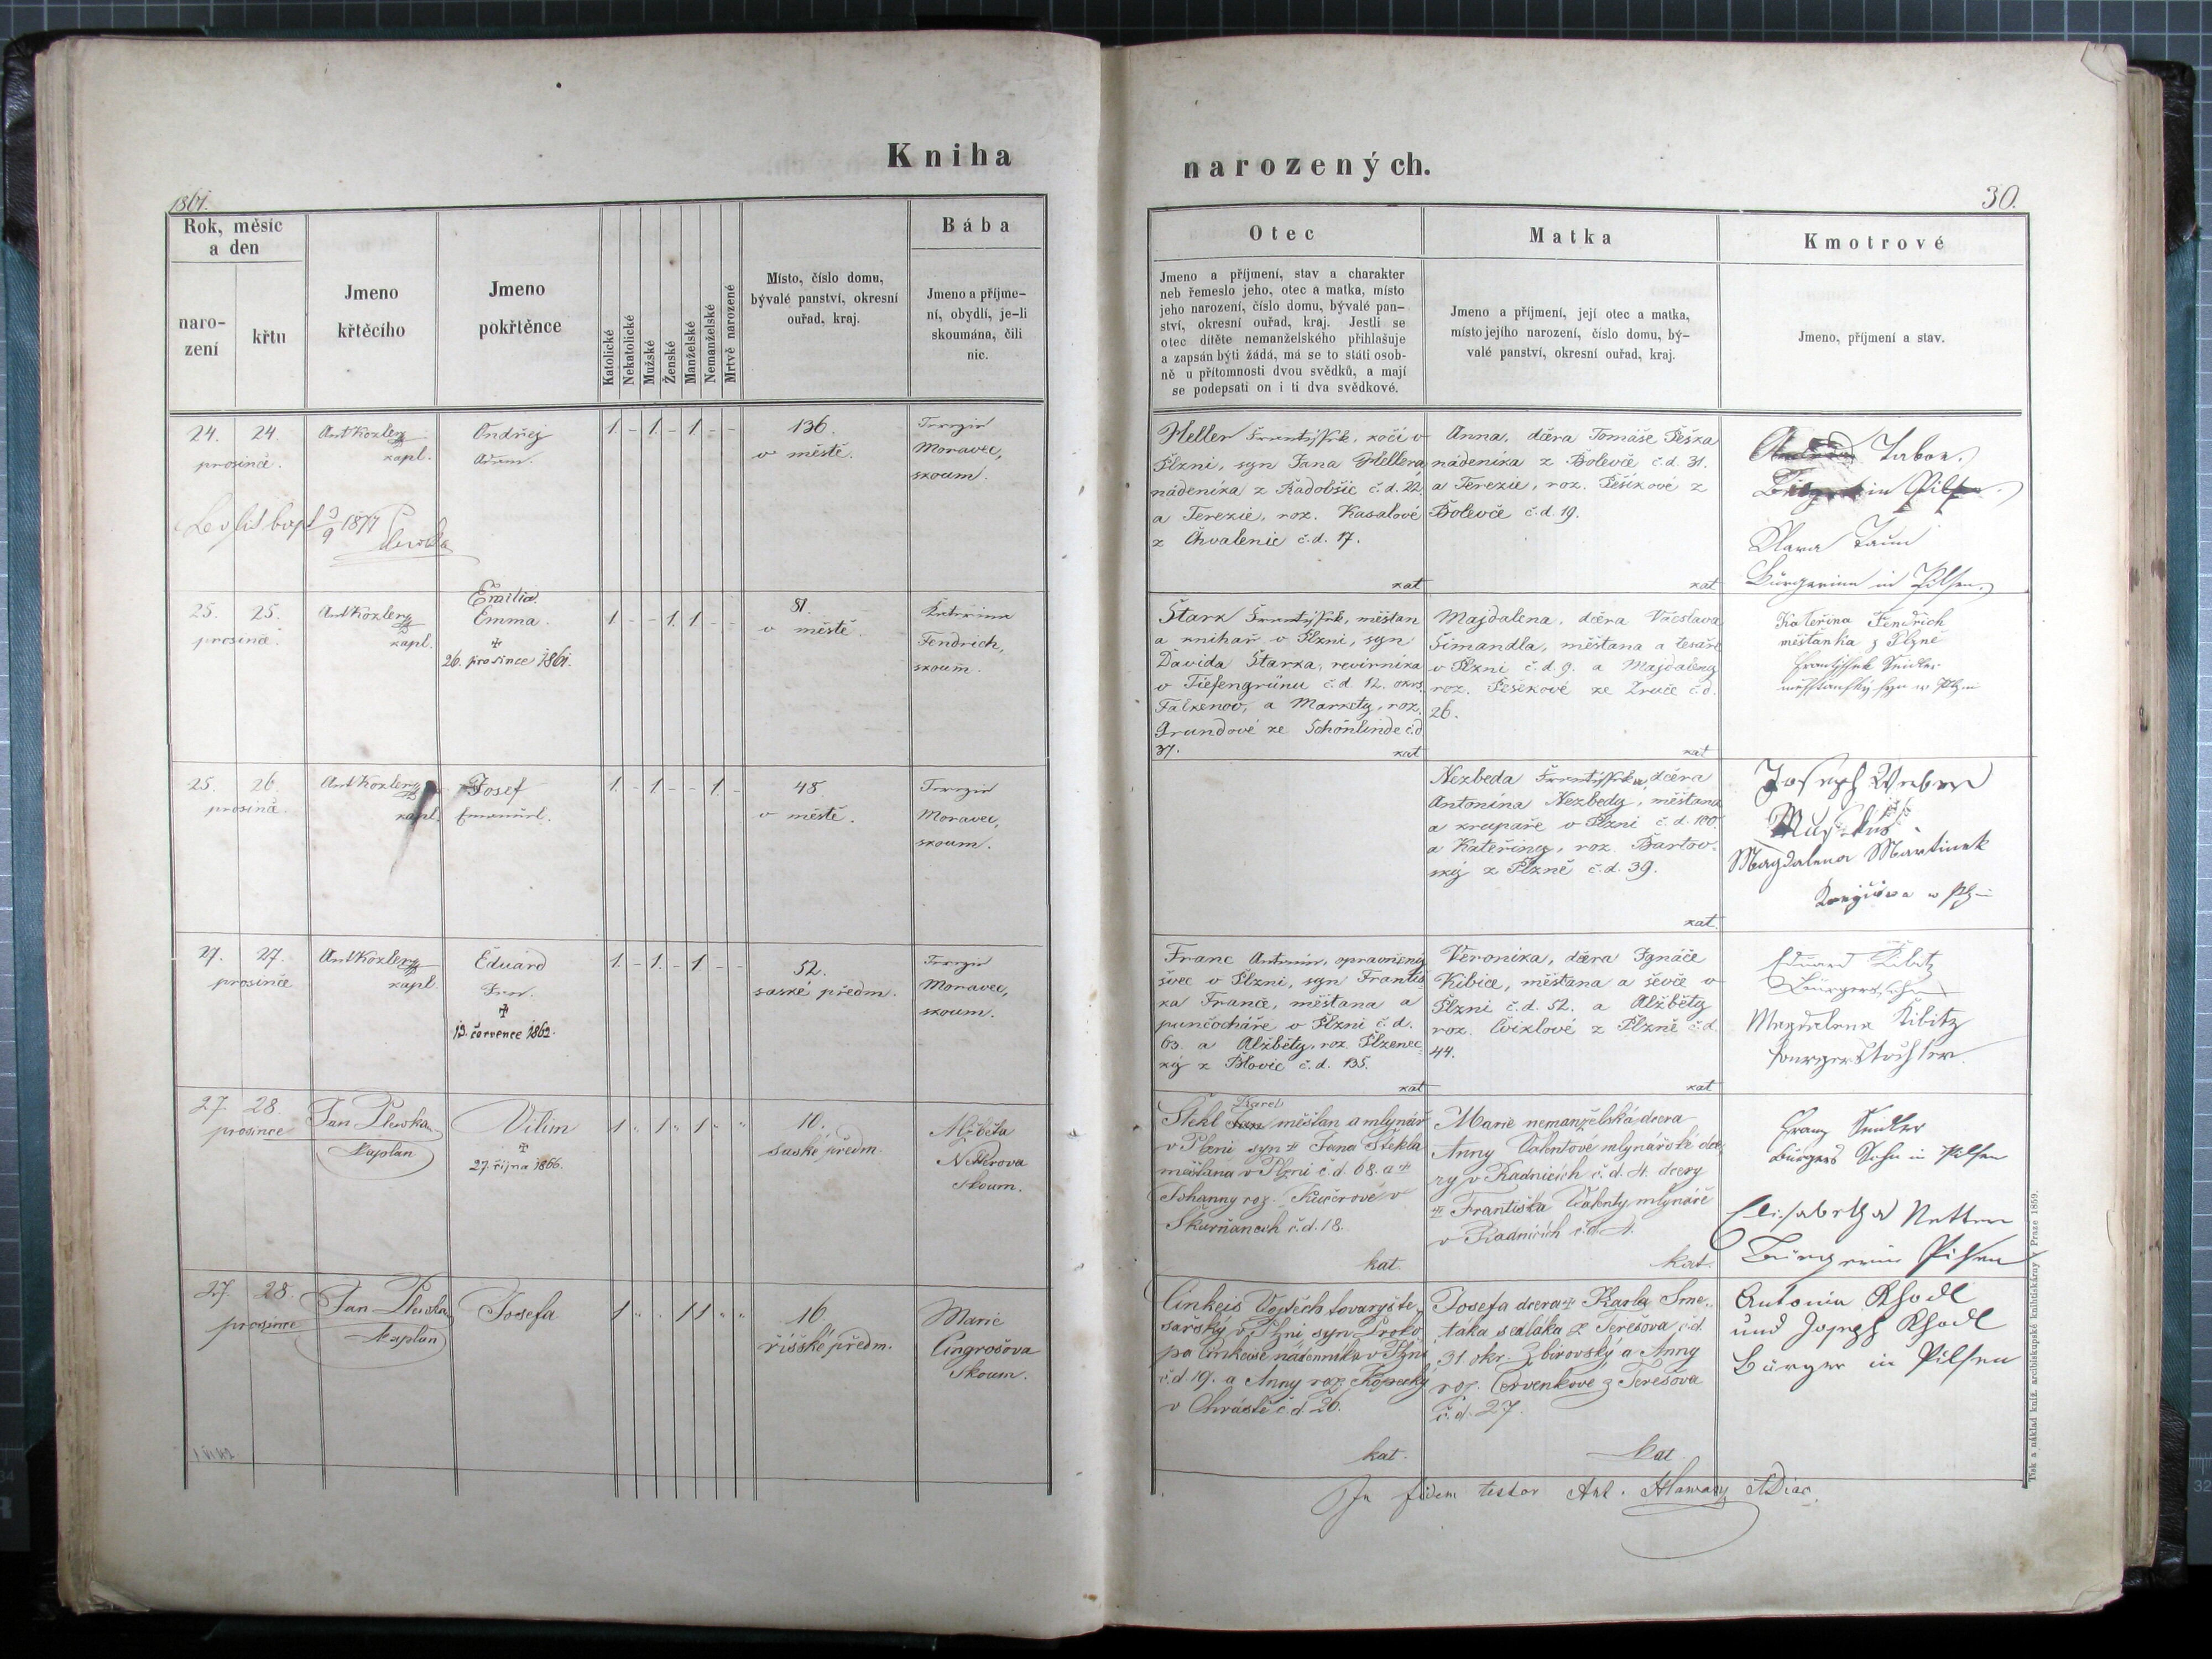 Kniha
1861.
Rok, měsíc
a den
naro-
zení
křtu
Jmeno
křtěcího
Jmeno
pokřtěnce
Katolické
Nekatolické
Mužské
Ženské
Manželské
Nemanželské
Mrtvě narozené
Místo, číslo domu,
bývalé panství, okresní
ouřad, kraj.
Bába
Jmeno a příjme-
ní, obydlí, je-li
skoumána, čili
nic.
24. 24.
prosince.
Ant Kozlerz
kapl.
Ondřej
Adam.
1. - 1. - 1. - -
136.
v městě.
Terezie
Moravec,
skoum.
1877
25. 25.
prosince.
Ant Kozlerz
kapl.
Emilia.
Emma.
26. prosince 1861.
1. - - 1. 1. - -
81.
v městě.
Kateřina
Fendrich,
skoum.
25. 26.
prosince.
Ant Kozlerz
kapl.
Josef
Emanuel.
1. - 1. - - 1. -
48.
v městě.
Terezie
Moravec,
skoum.
27. 27.
prosince
Ant Kozlerz
kapl.
Eduard
Ivan.
13. července 1862.
1. - 1. - 1. - -
52.
saské předm.
Terezie
Moravec,
skoum.
27. 28.
prosince
Jan Plevka
Kaplan
Vilím
27. října 1866.
1 " 1 " 1 " "
10.
saské předm.
Alžběta
Netterova
skoum.
27. 28.
prosince
Jan Plevka
Kaplan
Josefa
1 " " 1 1 " "
16.
říšské předm.
Marie
Cingrošova
skoum.
narozených.
30.
Otec
Jmeno a příjmení, stav a charakter
neb řemeslo jeho, otec a matka, místo
jeho narození, číslo domu, bývalé pan-
ství, okresní ouřad, kraj. Jestli se
otec dítěte nemanželského přihlašuje
a zapsán býti žádá, má se to státi osob-
ně u přítomnosti dvou svědků, a mají
se podepsati on i ti dva svědkové.
Matka
Jmeno a příjmení, její otec a matka,
místo jejího narození, číslo domu, bý-
valé panství, okresní ouřad, kraj.
Kmotrové
Jmeno, příjmení a stav.
Heller František, kočí v
Plzni, syn Jana Hellera
nádeníka z Radobšic č.d. 22.
a Terezie, roz. Kasalové
z Chvalenic č.d. 17.
kat
Anna, dcera Tomáše Peška
nádeníka z Bolevče č.d. 31.
a Terezie, roz. Pešikové z
Bolevče č.d. 19.
kat
Tabor.
in Pilsen.
Bürgerinn in Pilsen.
Stark František, městan
a knihař v Plzni, syn
Davida Starka, revírníka
v Tiefengrünu č.d. 12. okrs.
Falkenov, a Markéty, roz.
Grundové ze Schönlinde č.d
37.
kat
Majdalena, dcera Václava
Šimandla, měštana a tesaře
v Plzni č.d. 9. a Majdaleny
roz. Pešekové ze Zruče č.d.
26.
kat
Kateřina Fendrich
měštanka z Plzně
František Seidler
měšťanský syn w Plzni
Nezbeda Františka, dcera
Antonína Nezbedy, měštana
a krupaře v Plzni č.d. 100.
a Kateřiny, roz. Bartov-
ský z Plzně č.d. 39.
kat.
Joseph Weber
Musikus
Magdalena Martinek
Franc Antonín, oprávněný
švec v Plzni, syn Františ
ka France, měštana a
punčocháře v Plzni č.d.
63. a Alžběty, roz. Plzenec
ký z Blovic č.d. 135.
kat
Veronika, dcera Ignáce
Kibice, měštana a ševče v
Plzni č.d. 52. a Alžběty
roz. Cvixlové z Plzně č.d
44.
kat
Eduard Kibitz
Bürgerssohn
Magdalena Kibitz
Bürgerstochter
Karel
Štekl Jan měštan a mlynář
v Plzni syn Jana Štekla
měštana v Plzni č.d. 68. a
Johanny roz. Kučerové v
Skurňanech č.d. 18.
kat.
Marie nemanželská dcera
Anny Valentové mlynářské dce
ry v Radnicích č.d. 4. dcery
Františka Valenty mlynáře
v Radnicích č.d. 4.
kat.
Franz Seidler
Bürgers Sohn in Pilsen
Elisabetha Netter
Bürgerin Pilsen
Cinkeis Vojtěch tovaryš te-
sařský v Plzni, syn Proko
pa Cinkeise nádenníka v Plzni
č.d. 19. a Anny roz. Kopecký
v Chrástě č.d. 26.
kat.
Josefa dcera Karla Sme-
taka sedláka z Terešova č.d.
31 okr. Zbirovský a Anny
roz. Červenkové z Terešova
č.d. 27.
kat.
Antonia Khodl
und Joseph Khodl
Bürger in Pilsen
In fidem testor Ant. Hlawan ADiac.
Tisk a náklad kníž. arcibiskupské knihtiskárny v Praze 1859.